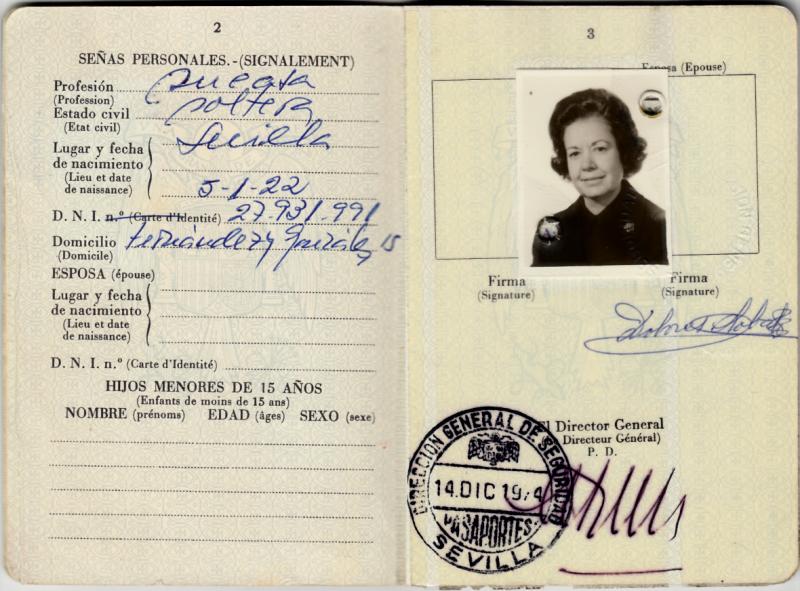 2
SEÑAS PERSONALES.-(SIGNALEMENT)
Profesión
(Profession)
Estado civil soltera
(Etat civil)
Lugar y fecha
de nacimiento
(Lieu et date
de naissance)
Sevilla
5-1-22
D. N. I. n.º (Carte d'Identité) 27.931.991
Domicilio Fernández y González 15
(Domicile)
ESPOSA (épouse)
Lugar y fecha
de nacimiento
(Lieu et date
de naissance)
D. N. I. n.º (Carte d'Identité)
HIJOS MENORES DE 15 AÑOS
(Enfants de moins de 15 ans)
NOMBRE (prénoms) EDAD (âges) SEXO (sexe)
3
Esposa (Epouse)
Firma
(Signature)
Firma
(Signature)
Dolores
El Director General
(Directeur Général)
P. D.
DIRECCION GENERAL DE SEGURIDAD
14 DIC 1974
PASAPORTES
SEVILLA